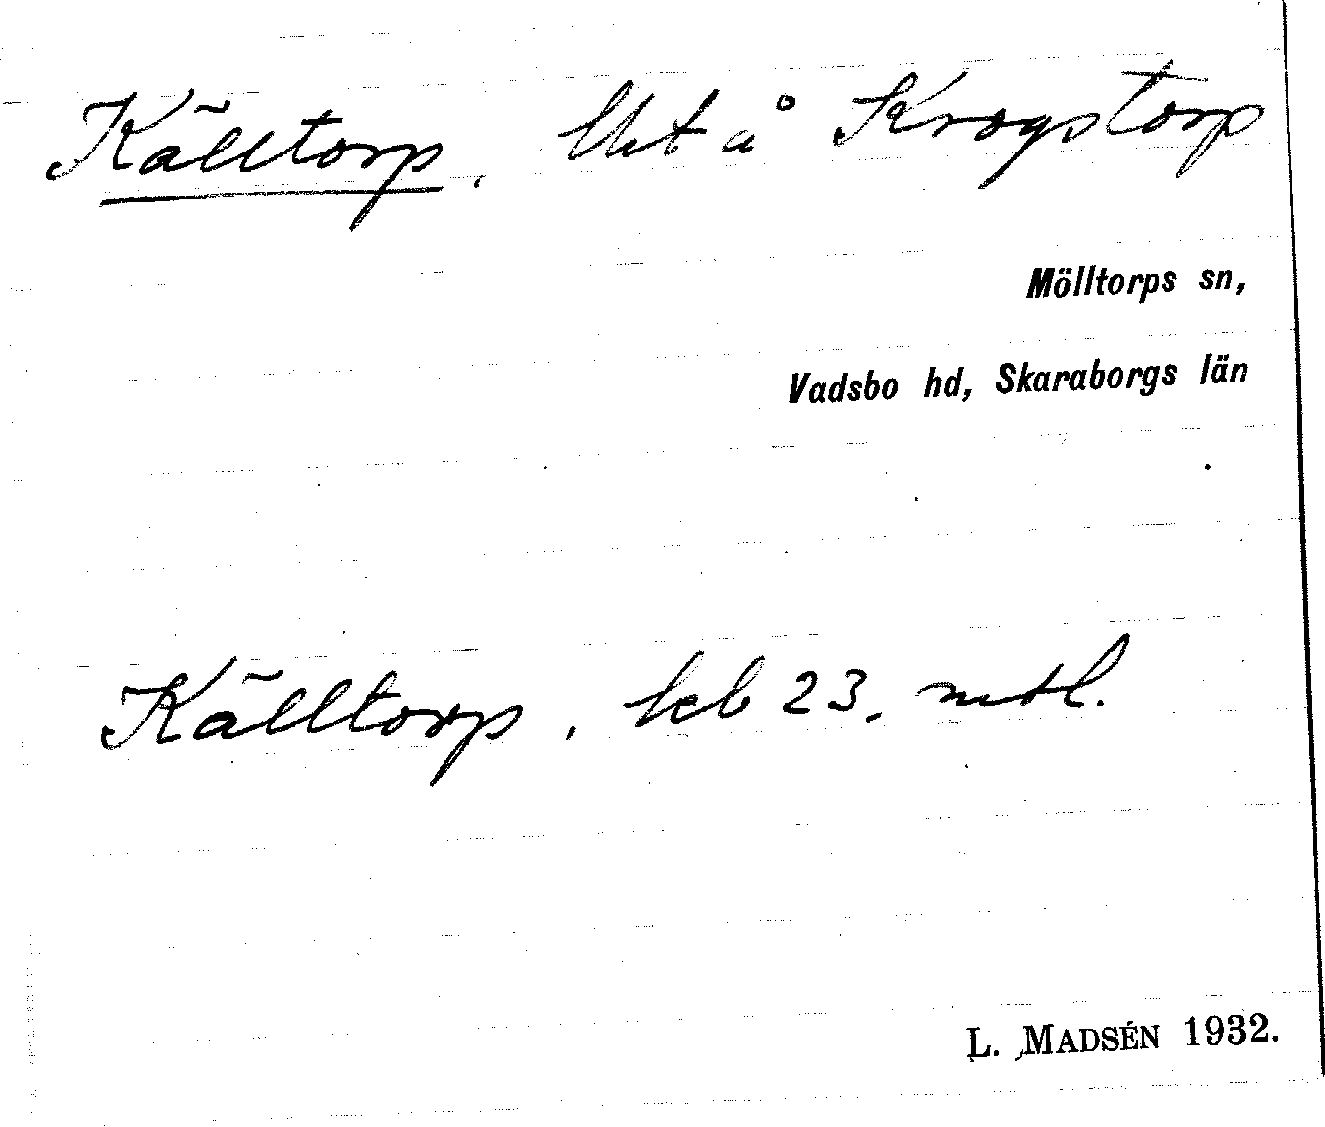 Källtorp, lht å Krogstorp
Mölltorps sn,
Vadsbo hd, Skaraborgs län
Källtorp, kcb 23, mtl.
L. MADSÉN 1932.